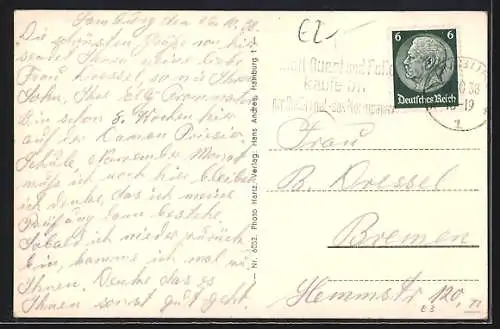 Hamburg den 26.10.38.
Die schönsten Grüße von hier
sendet Ihnen meine liebe
Frau Dressel, so wie Ihren
Sohn, Ihre Elly
Bin schon 8. Wochen hier
auf der Damen Friesier
Schule November Monat
muß ich noch hier bleiben
ich denke, das ich meine
Prüfung dann bestehe,
sobald ich wieder zurück
bin, komme ich mal zu
Ihnen. Denke das es
Ihnen sonst gut geht.
Nr. 6052. Photo Hartz. Verlag: Hans Andres, Hamburg 1
EZ-
statt Quant und Faden
kaufe
6 6
Deutsches Reich
38
-19
Frau
B. Dressel
Bremen
Hemmstr 120, II
E3